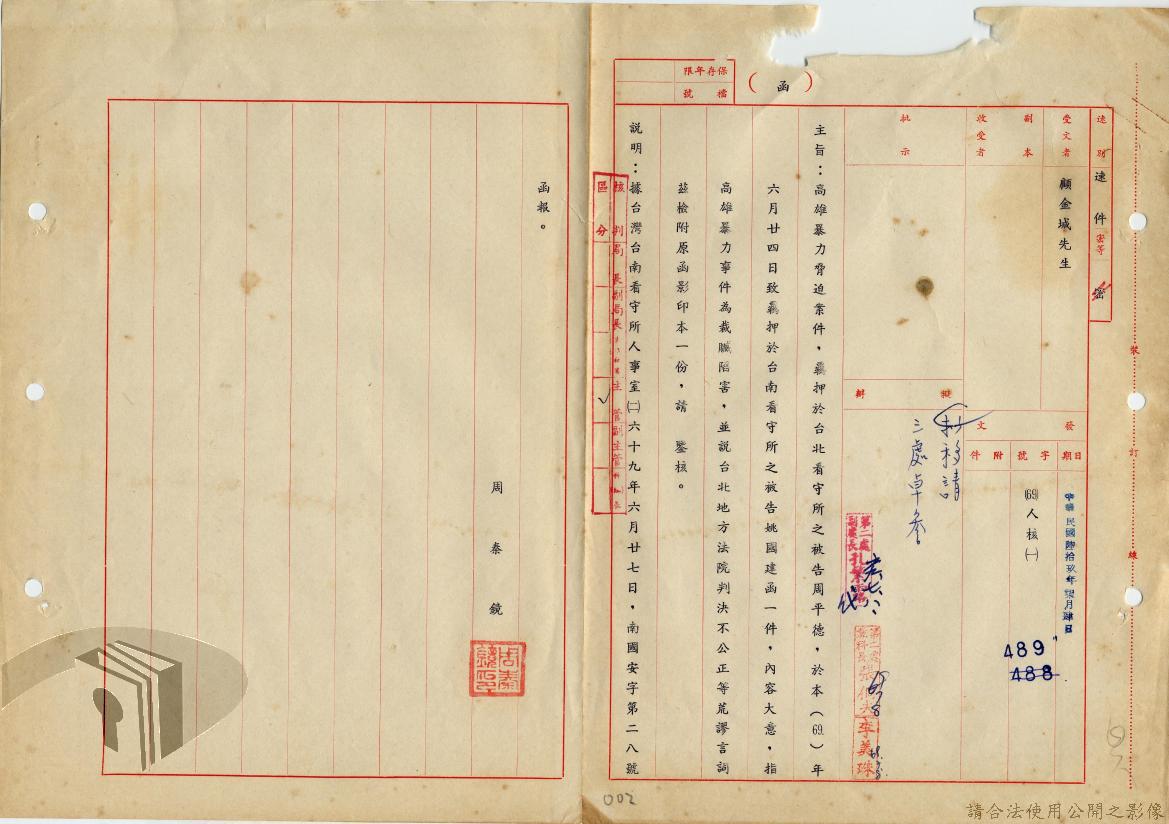 保存年限
檔號
（函）
速別 速件 密等 密
受文者 顧金城先生
副本收受者
批示
擬辦
發文
日期 中華民國陸拾玖年柒月肆日
字號 (69)人核㈠
489
488
附件
拟移請
三處卓參
第二處副處長
第二處
李美珠
主旨：高雄暴力脅迫案件，羈押於台北看守所之被告周平德，於本（69.）年
六月廿四日致羈押於台南看守所之被告姚國建函一件，內容大意，指
高雄暴力事件為栽贓陷害，並説台北地方法院判決不公正等荒謬言詞
茲檢附原函影印本一份，請　鑒核。
説明：據台灣台南看守所人事室㈡六十九年六月廿七日，南國安字第二八號
區分
核判
局長
副局長
裝
訂
線
函報。
周秦鏡
周秦鏡印
002
請合法使用公開之影像